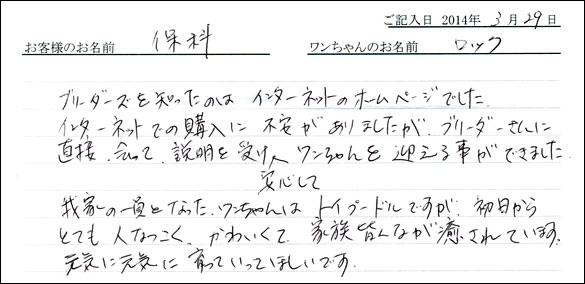 ご記入日 2014年 3月29日
お客様のお名前 保科 ワンちゃんのお名前 ロック
ブリーダーズを知ったのは インターネットのホームページでした。
インターネットでの購入に 不安がありましたが、ブリーダーさんに
直接、会って、説明を受け、ワンちゃんを 迎える事ができました
安心して
我家の一員となった、ワンちゃんは トイプードルですが、初日から
とても 人なつこく、かわいくて、家族皆んなが癒されています。
元気に元気に 育っていってほしいです。